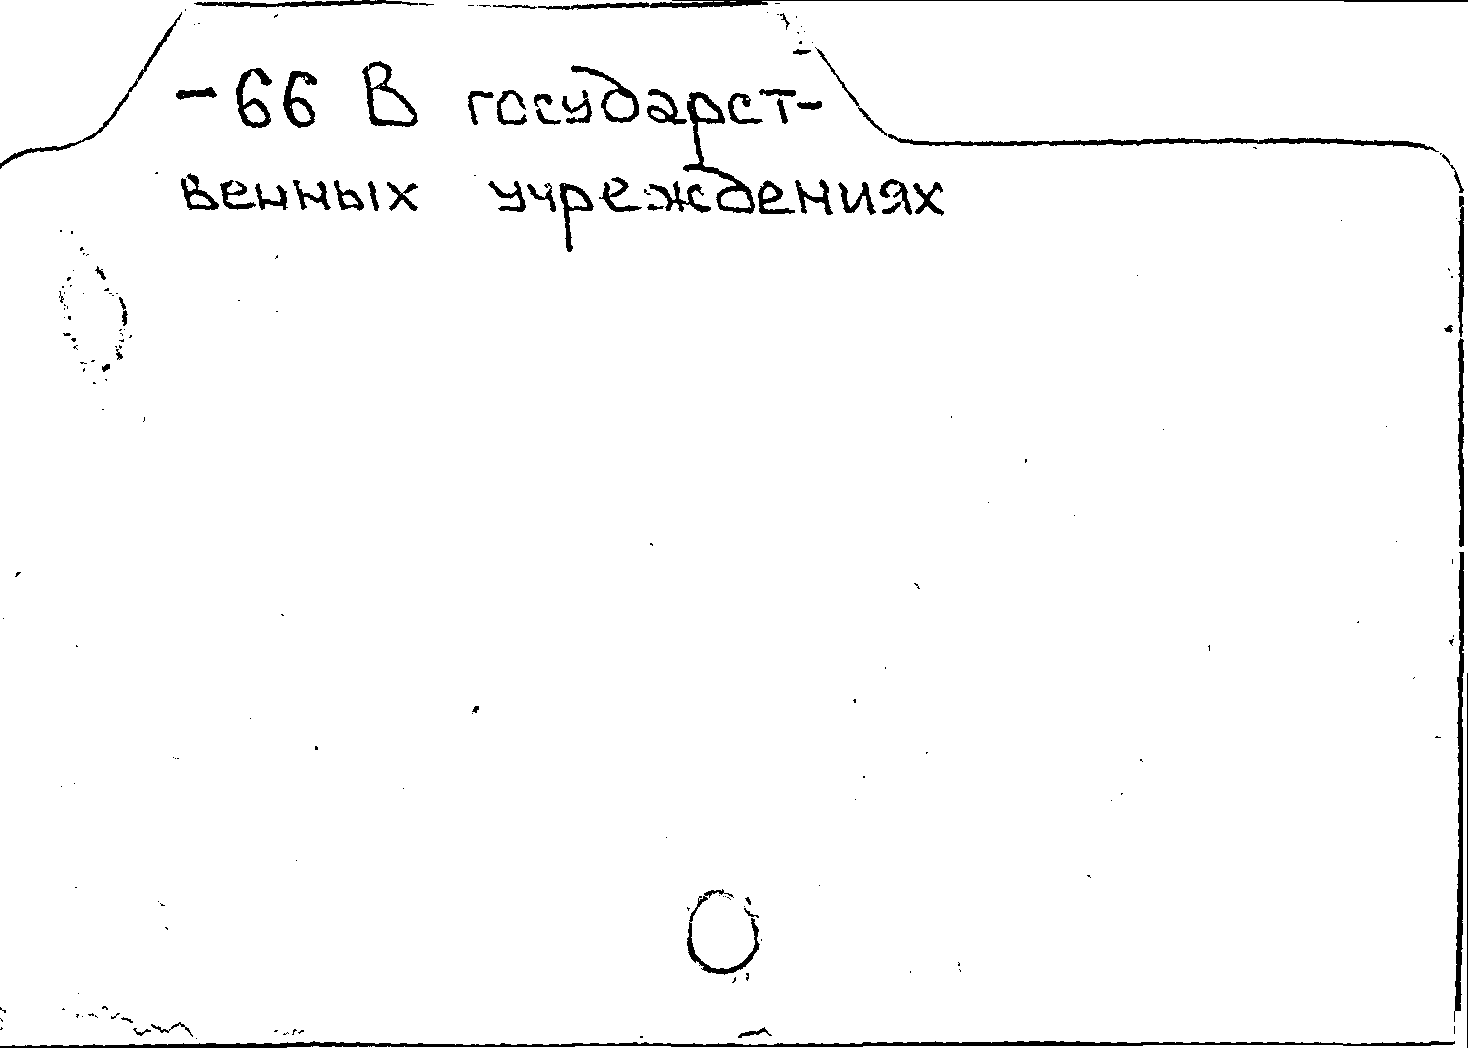 -66 В государст-
венных учреждениях